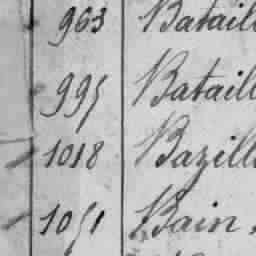 963 Bataill
995 Bataill
1018 Bazill
1051 Bain